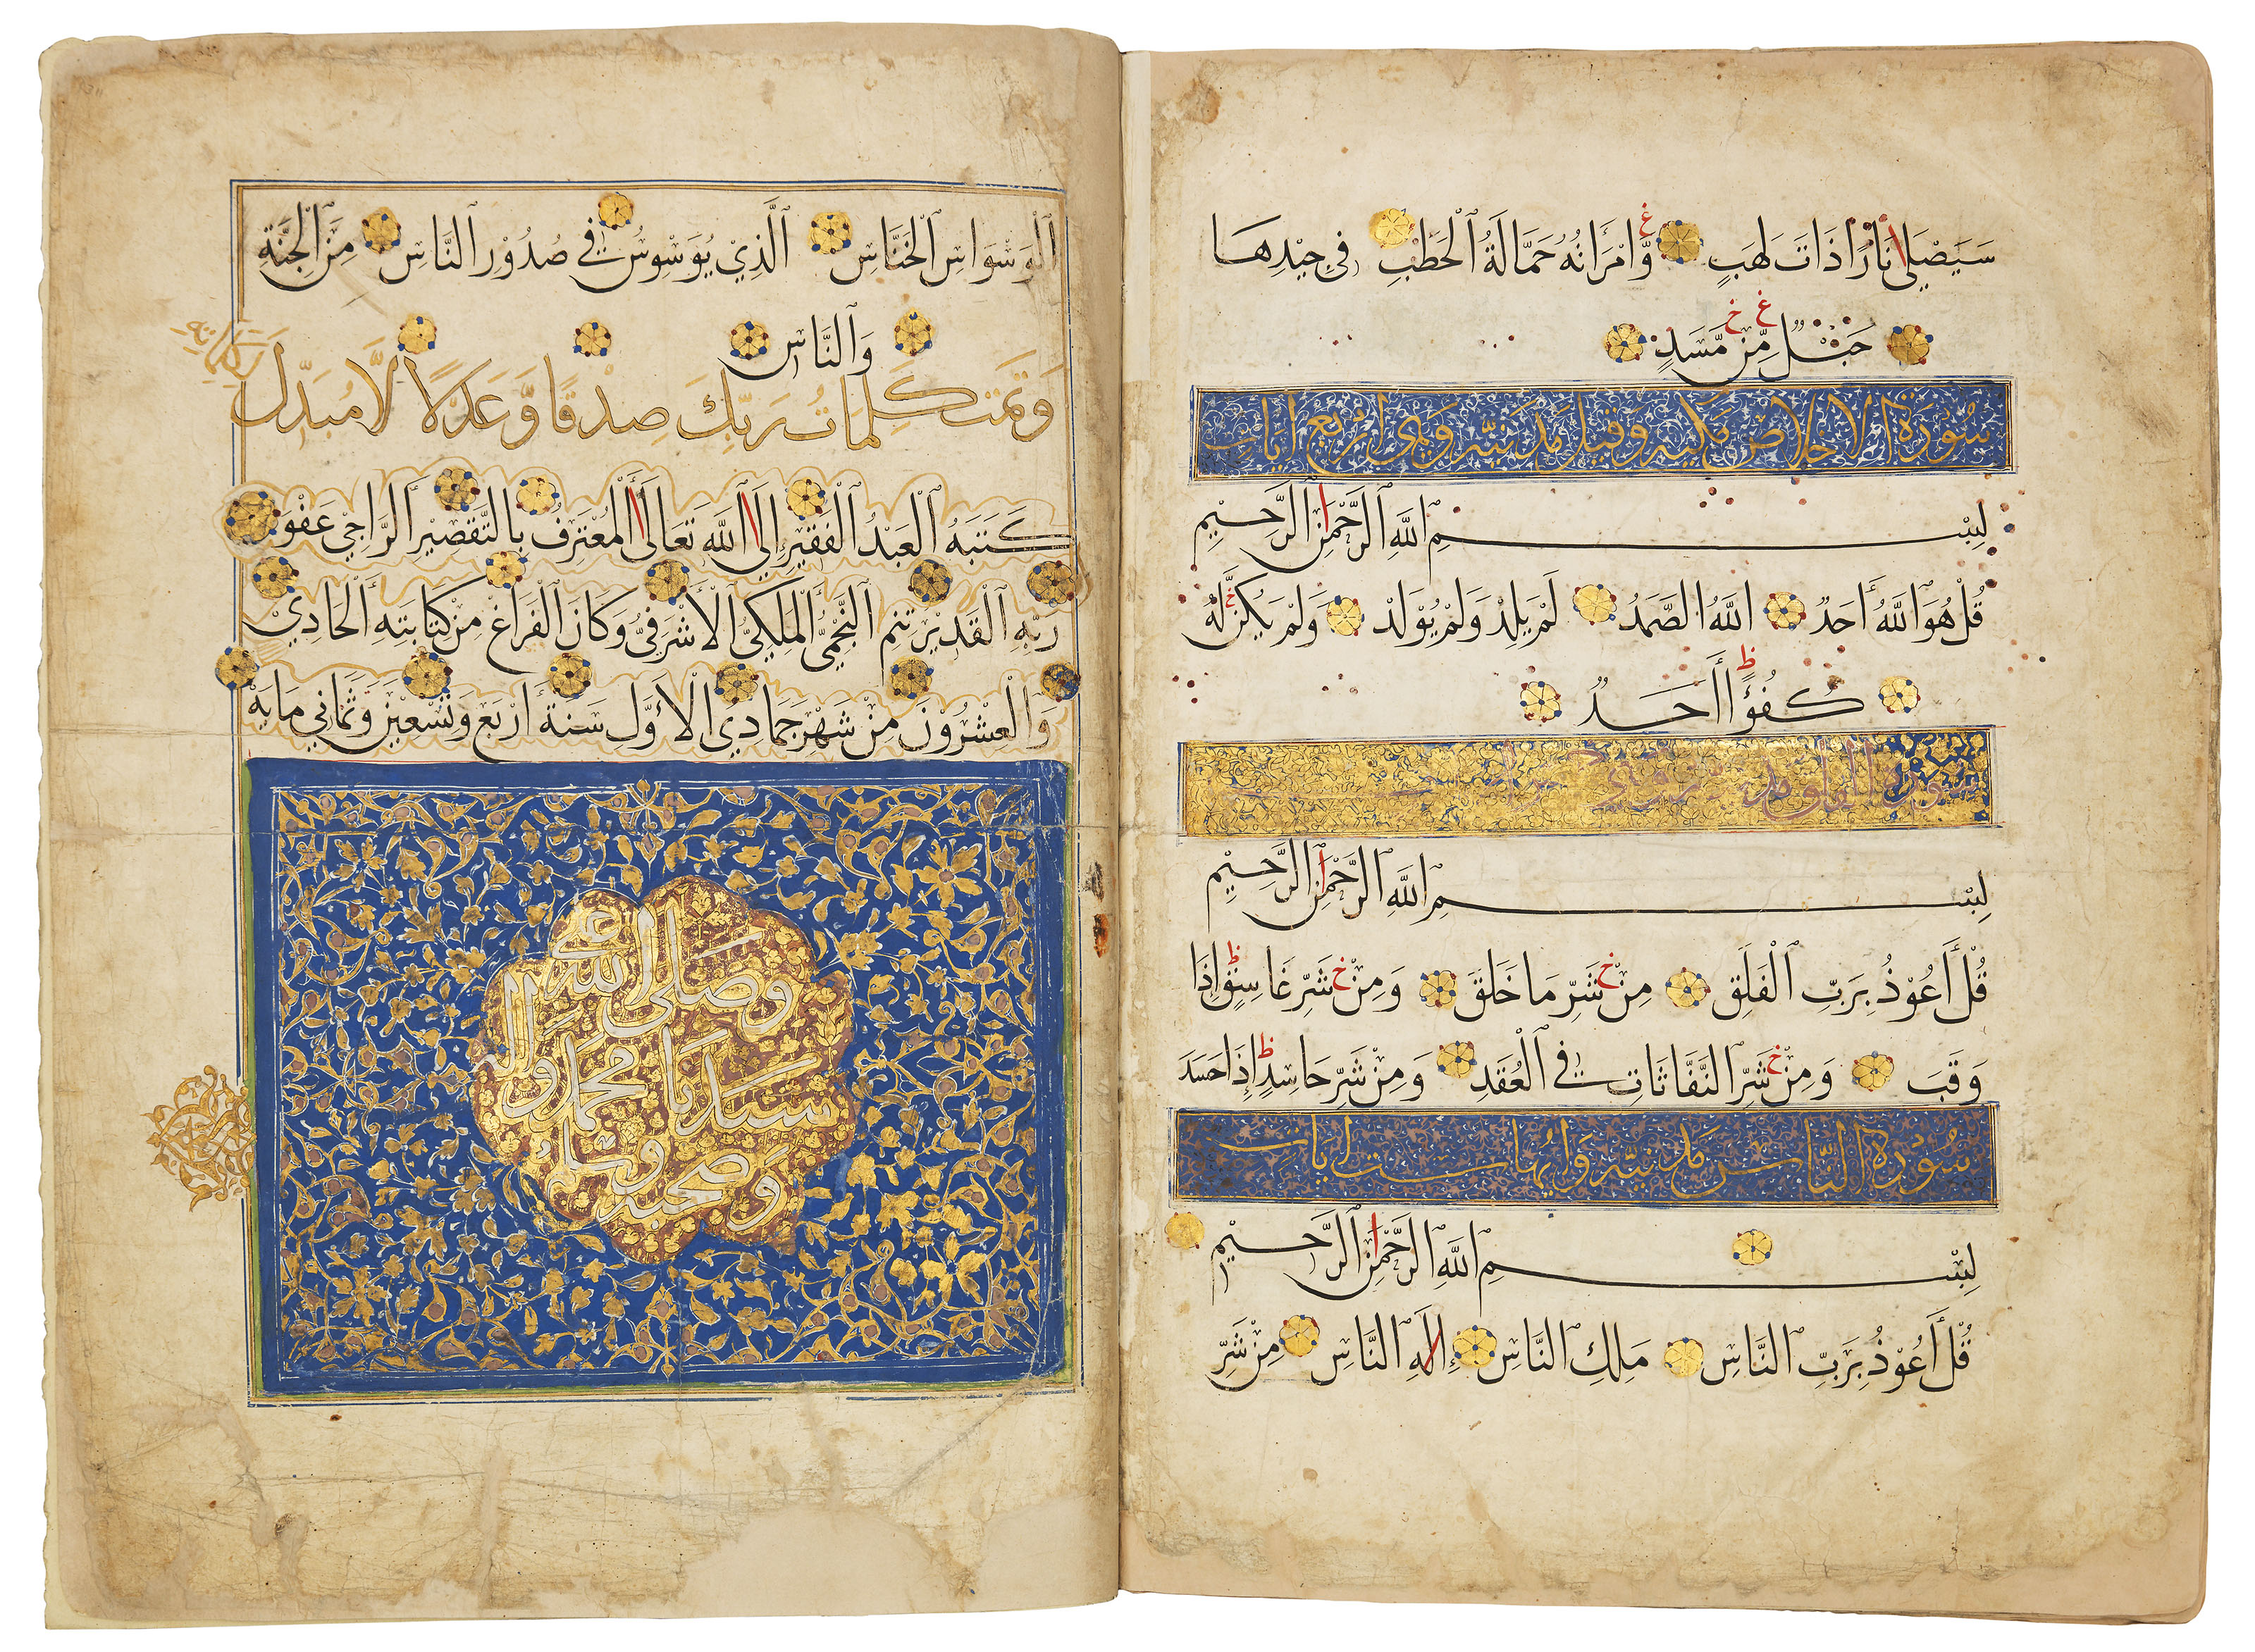 سَيَصْلَىٰ نَارًا ذَاتَ لَهَبٍ وَّامْرَأَتُهُ حَمَّالَةُ الْحَطَبِ فِي جِيْدِهَا
حَبْلٌ مِّنْ مَّسَدٍ
سُوْرَةُ الاخلاص مكية وقيل مدنية وهي اربع ايات
بِسْمِ اللَّهِ الرَّحْمٰنِ الرَّحِيْمِ
قُلْ هُوَ اللَّهُ أَحَدٌ اللَّهُ الصَّمَدُ لَمْ يَلِدْ وَلَمْ يُوْلَدْ وَلَمْ يَكُنْ لَّهُ
كُفُؤًا أَحَدٌ
سورة الفلق
بِسْمِ اللَّهِ الرَّحْمٰنِ الرَّحِيْمِ
قُلْ أَعُوْذُ بِرَبِّ الْفَلَقِ مِنْ شَرِّ مَا خَلَقَ وَمِنْ شَرِّ غَاسِقٍ إِذَا
وَقَبَ وَمِنْ شَرِّ النَّفَّاثَاتِ فِي الْعُقَدِ وَمِنْ شَرِّ حَاسِدٍ إِذَا حَسَدَ
سُوْرَةُ النَّاس مدنية وايها ست ايات
بِسْمِ اللَّهِ الرَّحْمٰنِ الرَّحِيْمِ
قُلْ أَعُوْذُ بِرَبِّ النَّاسِ مَلِكِ النَّاسِ إِلٰهِ النَّاسِ مِنْ شَرِّ
الْوَسْوَاسِ الْخَنَّاسِ الَّذِيْ يُوَسْوِسُ فِي صُدُوْرِ النَّاسِ مِنَ الْجِنَّةِ
وَالنَّاسِ
وَتَمَّتْ كَلِمَاتُ رَبِّكَ صِدْقًا وَّعَدْلًا لَّا مُبَدِّلَ
لِكَلِمَاتِهِ
كَتَبَهُ الْعَبْدُ الْفَقِيْرُ إِلَى اللَّهِ تَعَالَى الْمُعْتَرِفُ بِالتَّقْصِيْرِ الرَّاجِيْ عَفْوَ
رَبِّهِ الْقَدِيْرِ تنم النَّجْمِيُّ الْمَلِكِيُّ الْأَشْرَفِيُّ وَكَانَ الْفَرَاغْ مِنْ كِتَابَتِهِ الْحَادِيْ
وَالْعِشْرُوْنَ مِنْ شَهْرِ جَمَادِي الْأَوَّلِ سَنَةَ أَرْبَعٍ وَتِسْعِيْنَ وَثَمَانِي مَايَةْ
وصلى الله على
سيدنا محمد وال
وصحبه وسلم